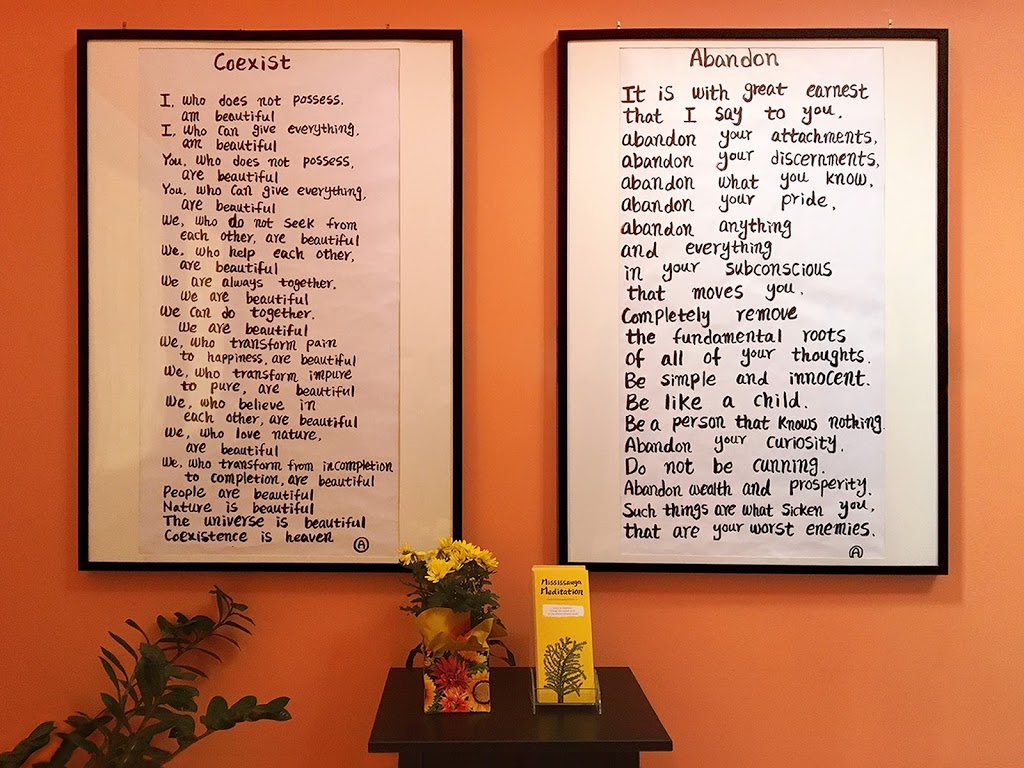 Coexist
I, who does not possess,
am beautiful
I, who can give everything,
am beautiful
You, who does not possess,
are beautiful
You, who can give everything,
are beautiful
We, who do not seek from
each other, are beautiful
We, who help each other,
are beautiful
We are always together,
we are beautiful
We can do together,
We are beautiful
We, who transform pain
to happiness, are beautiful
We, who transform impure
to pure, are beautiful
We, who believe in
each other, are beautiful
We, who love nature,
are beautiful
We, who transform from incompletion
to completion, are beautiful
People are beautiful
Nature is beautiful
The universe is beautiful
Coexistence is heaven
A
Abandon
It is with great earnest
that I say to you,
abandon your attachments,
abandon your discernments,
abandon what you know,
abandon your pride,
abandon anything
and everything
in your subconscious
that moves you.
Completely remove
the fundamental roots
of all of your thoughts.
Be simple and innocent.
Be like a child.
Be a person that knows nothing.
Abandon your curiosity.
Do not be cunning.
Abandon wealth and prosperity.
Such things are what sicken you,
that are your worst enemies.
A
Mississauga
Meditation